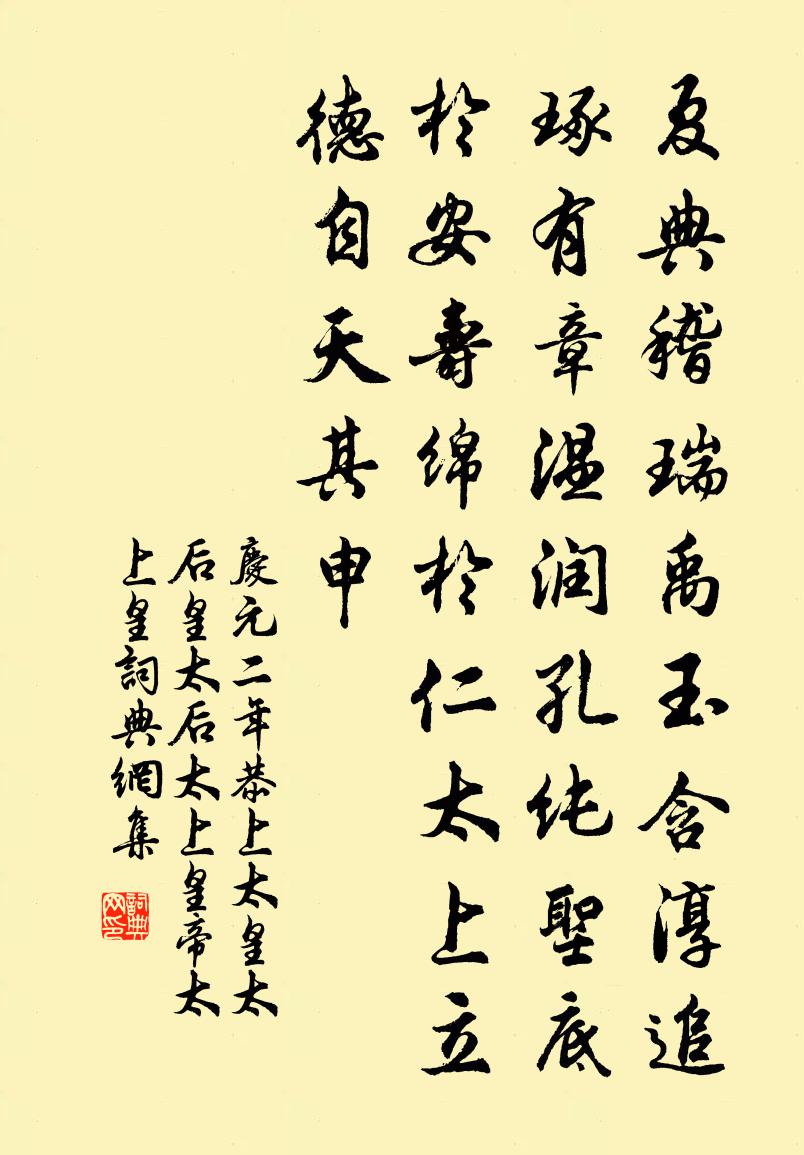 夏典稽瑞禹玉含淳追
琢有章温润孔纯聖底
於安壽绵於仁太上立
德自天其申
慶元二年恭上太皇太
后皇太后太上皇帝太
上皇詞典網集
詞典
网印